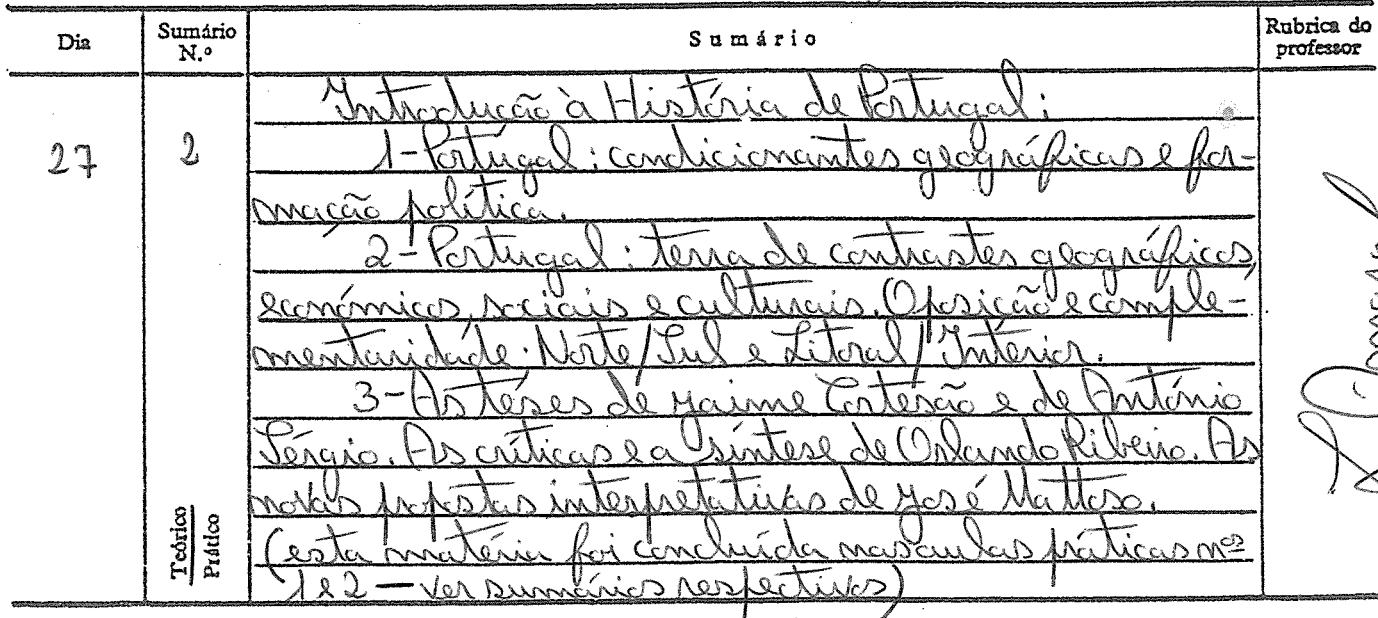 Dia Sumário N.º Sumário Rubrica do professor
27 2 Introdução à História de Portugal:
1-Portugal: condicionantes geográficas e for-
mação política.
2-Portugal: terra de contrastes geográficos,
económicos, sociais e culturais. Oposição e comple-
mentaridade: Norte/Sul e Litoral/Interior.
3-As teses de Jaime Cortesão e de António
Sérgio. As críticas e a síntese de Orlando Ribeiro. As
novas propostas interpretativas de José Mattoso.
(esta matéria foi concluída nas aulas práticas nºs
1 e 2 — ver sumários respectivos)
Teórico
Prático